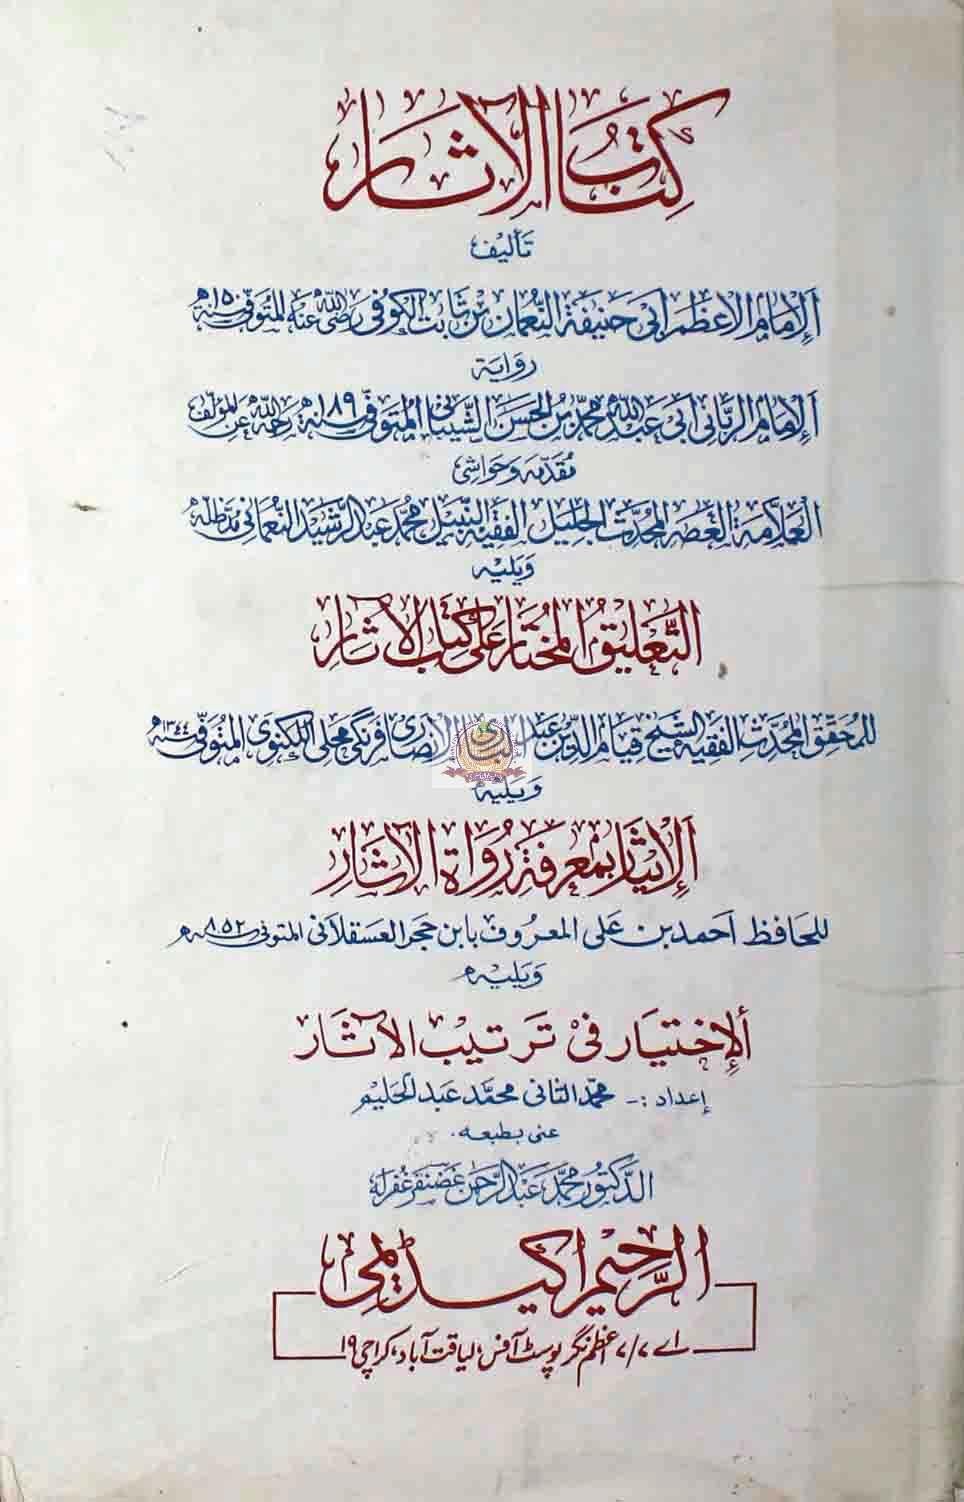 كتاب الآثار
تأليف
ألإمام الاعظم ابى حنيفة النعمان بن ثابت الكوفى رضى الله عنه المتوفى سنة ١٥٠ھ
رواية
ألإمام الربانى ابى عبدالله محمد بن الحسن الشيبانى المتوفى سنة ١٨٩ھ رحمه الله عن المؤلف
مقدمه وحواشى
العلامة المحدث الجليل الفقيه النبيل محمد عبدالرشيد النعمانى مدظله
ويليه
التعليق المختار على كتاب الآثار
للمحقق المحدث الفقيه الشيخ قيام الدين عبد البارى الانصارى فرنگى محلى اللكنوى المتوفى سنة ١٣٤٤ھ
ويليه
ألإيثار بمعرفة رواة الآثار
للحافظ احمد بن على المعروف بابن حجر العسقلانى المتوفى سنة ٨٥٢ھ
ويليه
ألإختيار فى ترتيب الآثار
إعداد :- محمد الثانى محمد عبدالحليم
عنى بطبعه
الدكتور محمد عبدالرحمن غضنفر غفرله
الرحيم اكيڈيمى
اے ٧/٧ اعظم نگر پوسٹ آفس، لیاقت آباد، کراچی ١٩